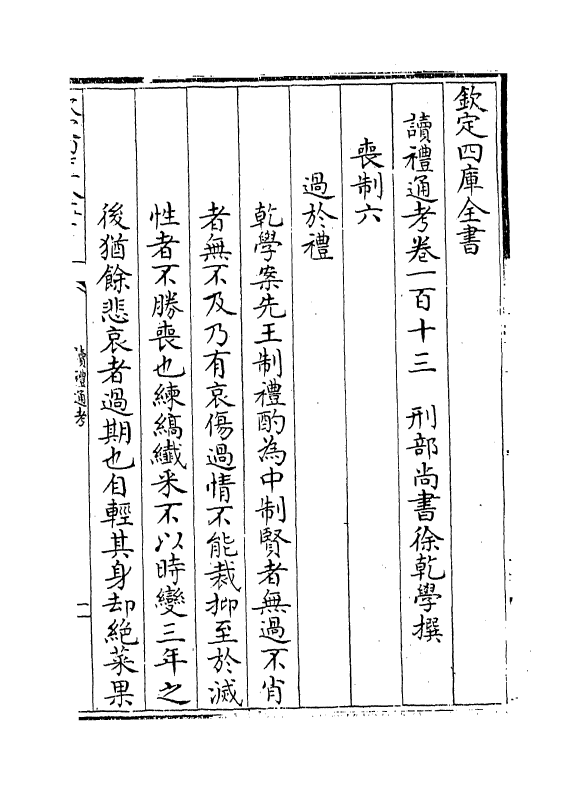 欽定四庫全書
讀禮通考卷一百十三　刑部尚書徐乾學撰
喪制六
過於禮
乾學案先王制禮酌為中制賢者無過不肖
者無不及乃有哀傷過情不能裁抑至於滅
性者不勝喪也練縞纖采不以時變三年之
後猶餘悲哀者過期也自輕其身却絶菜果
讀禮通考